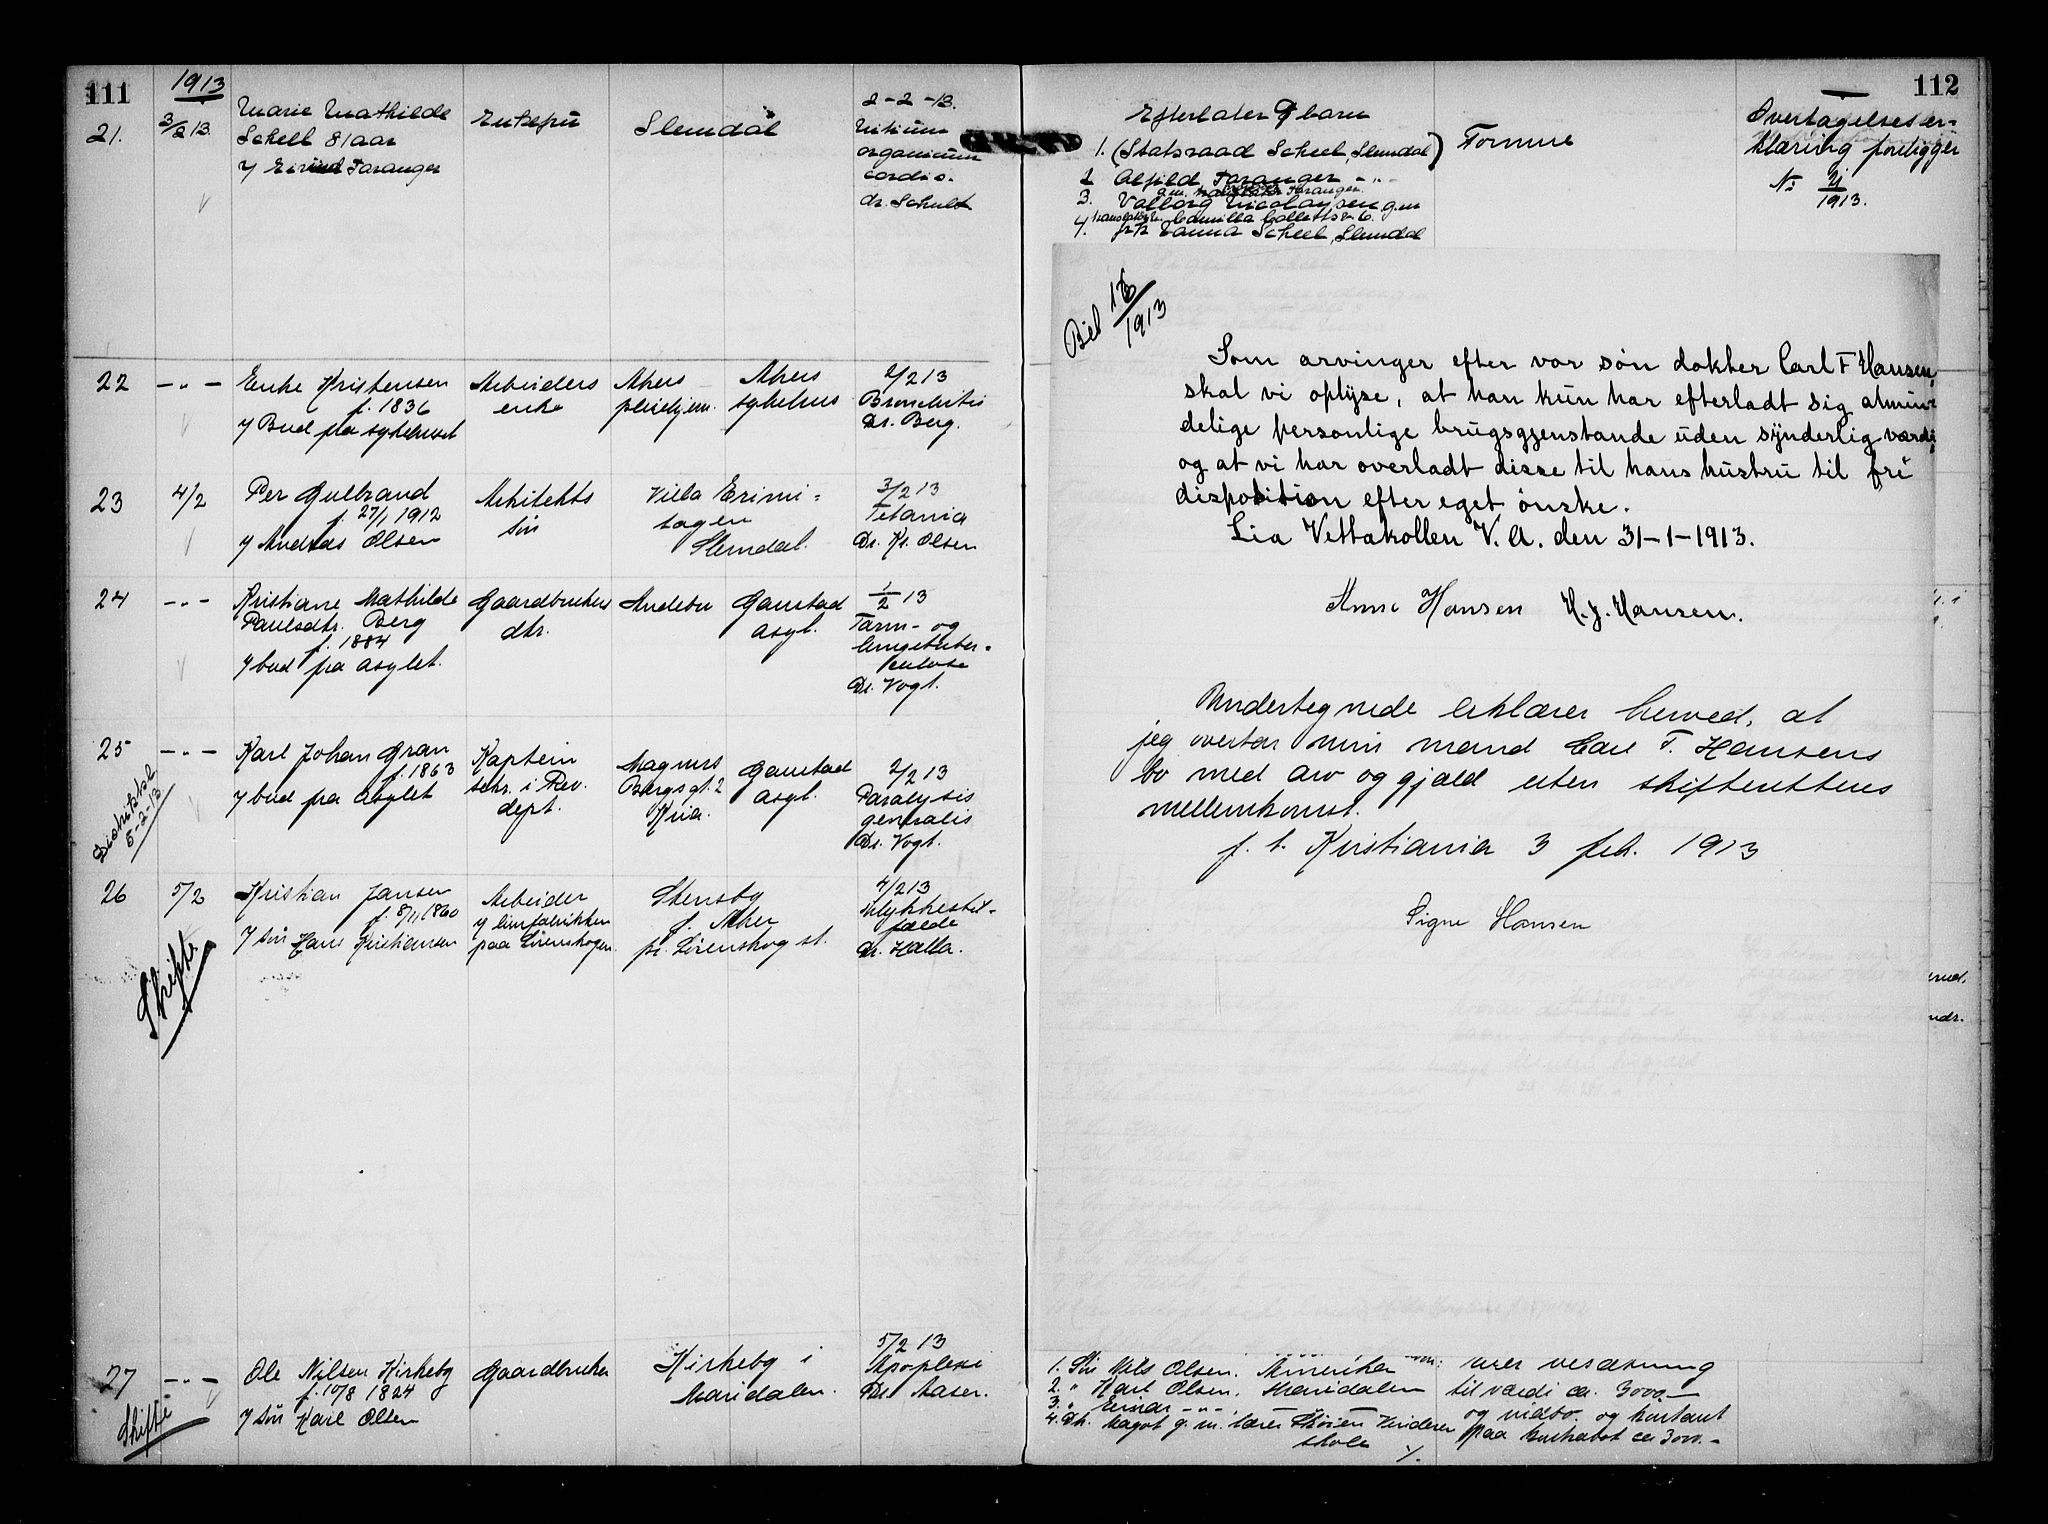 111
1913
21.
3/2 13.
Marie Mathilde
Scheel 81 aar
Enkefru
Slemdal
2-2-13.
Vitium
organicum
cordis.
dr. Schult
22
—„—
Enke Kristensen
f. 1836
v/ Bud fra sykehuset
Arbeiders
enke
Akers
pleiehjem.
Akers
sykehus
2/2 13
Bronchitis
Dr. Berg.
23
4/2
Per Gulbrand
f. 27/1 1912
v/ Andreas Olsen
Arkitekts
søn
Villa Erimi-
tagen
Slemdal.
3/2 13
Tetania
Dr. Kr. Olsen
24
—„—
Kristiane Mathilde
Paulsdtr. Berg
f. 1884
v/ bud fra asylet.
Gaardbrukers
dtr.
Andebu
Gaustad
asyl.
1/2 13
Tarm- og
lungetuber-
kulose
Dr. Vogt.
25
—„—
Distriktsk
5-2-13
Karl Johan Gran
f. 1863
v/ bud fra asylet
Kaptein
sekr. i Rev.
dept.
Magnus
Bergsgt. 2
Kria.
Gaustad
asyl.
2/2 13
Paralysis
generalis
Dr. Vogt.
26
5/2
Skifte
Kristian Jansen
f. 8/11 1860
v/ søn Hans Kristiansen
Arbeider
v/ limfabrikken
paa Lørenskogen.
Stensby
f. Aker
pr. Lørenskog st.
4/2 13
Ulykkestil-
fælde
Dr. Halla.
27
—„—
Skifte
Ole Nilsen Kirkeby
f. 10/8 1824
v/ søn Karl Olsen
Gaardbruker
Kirkeby i
Maridalen.
5/2 13
Apoplexi
Dr. Aaser.
112
Efterlater 9 barn
1. (Statsraad Scheel, Slemdal)
2 Alfild Faranger —„—
3. Valborg Nicolaysen gm
Camilla Colletts v. 6.
4. frk Hanna Scheel, Slemdal
Formue
Overtagelseser-
klæring foreligger
No 21/1913.
Bil 16/1913
Som arvinger efter vor søn doktor Carl F Hansen,
skal vi oplyse, at han kun har efterladt sig almin-
delige personlige brugsgjenstande uden synderlig værdi,
og at vi har overladt disse til hans hustru til fri
disposition efter eget ønske.
Lia Vettakollen V. A. den 31-1-1913.
Anne Hansen H. J. Hansen.
Undertegnede erklærer herved, at
jeg overtar min mand Carl F. Hansens
bo med arv og gjæld uten skifterettens
mellemkomst.
p. t. Kristiania 3 feb. 1913
Signe Hansen
1. Søn Nils Olsen. Amerika
2. „ Karl Olsen, Maridalen
3. „ Einar —„—
4. Dt. Magot g. m. lærer Skøien Vinderen
skole
til værdi ca. 3000-
og indbo. og kontant
paa